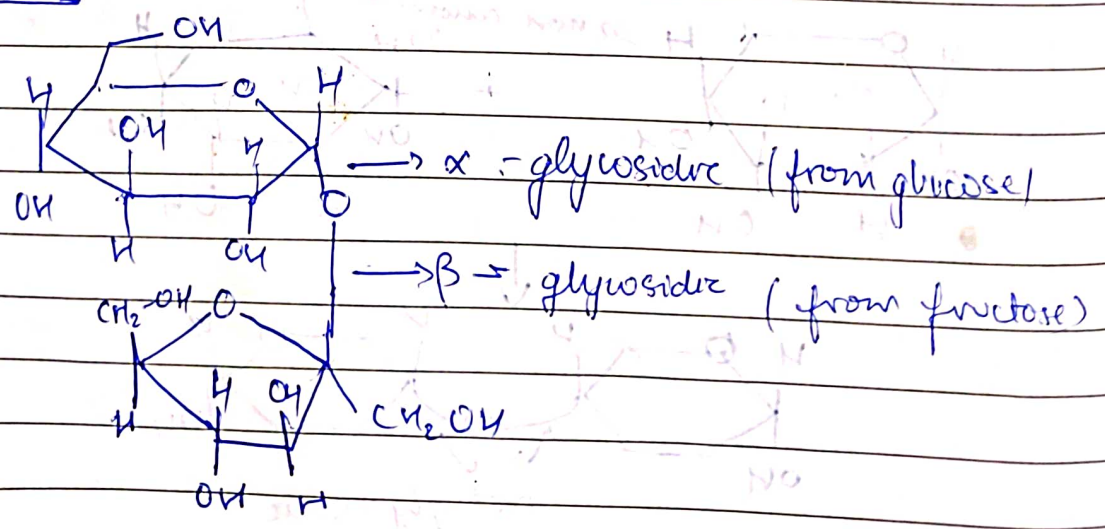 OH
O H
H
OH H
→ α - glycosidic (from glucose)
OH O
H OH
→ β - glycosidic (from fructose)
CH2-OH O
H OH
H CH2OH
OH H